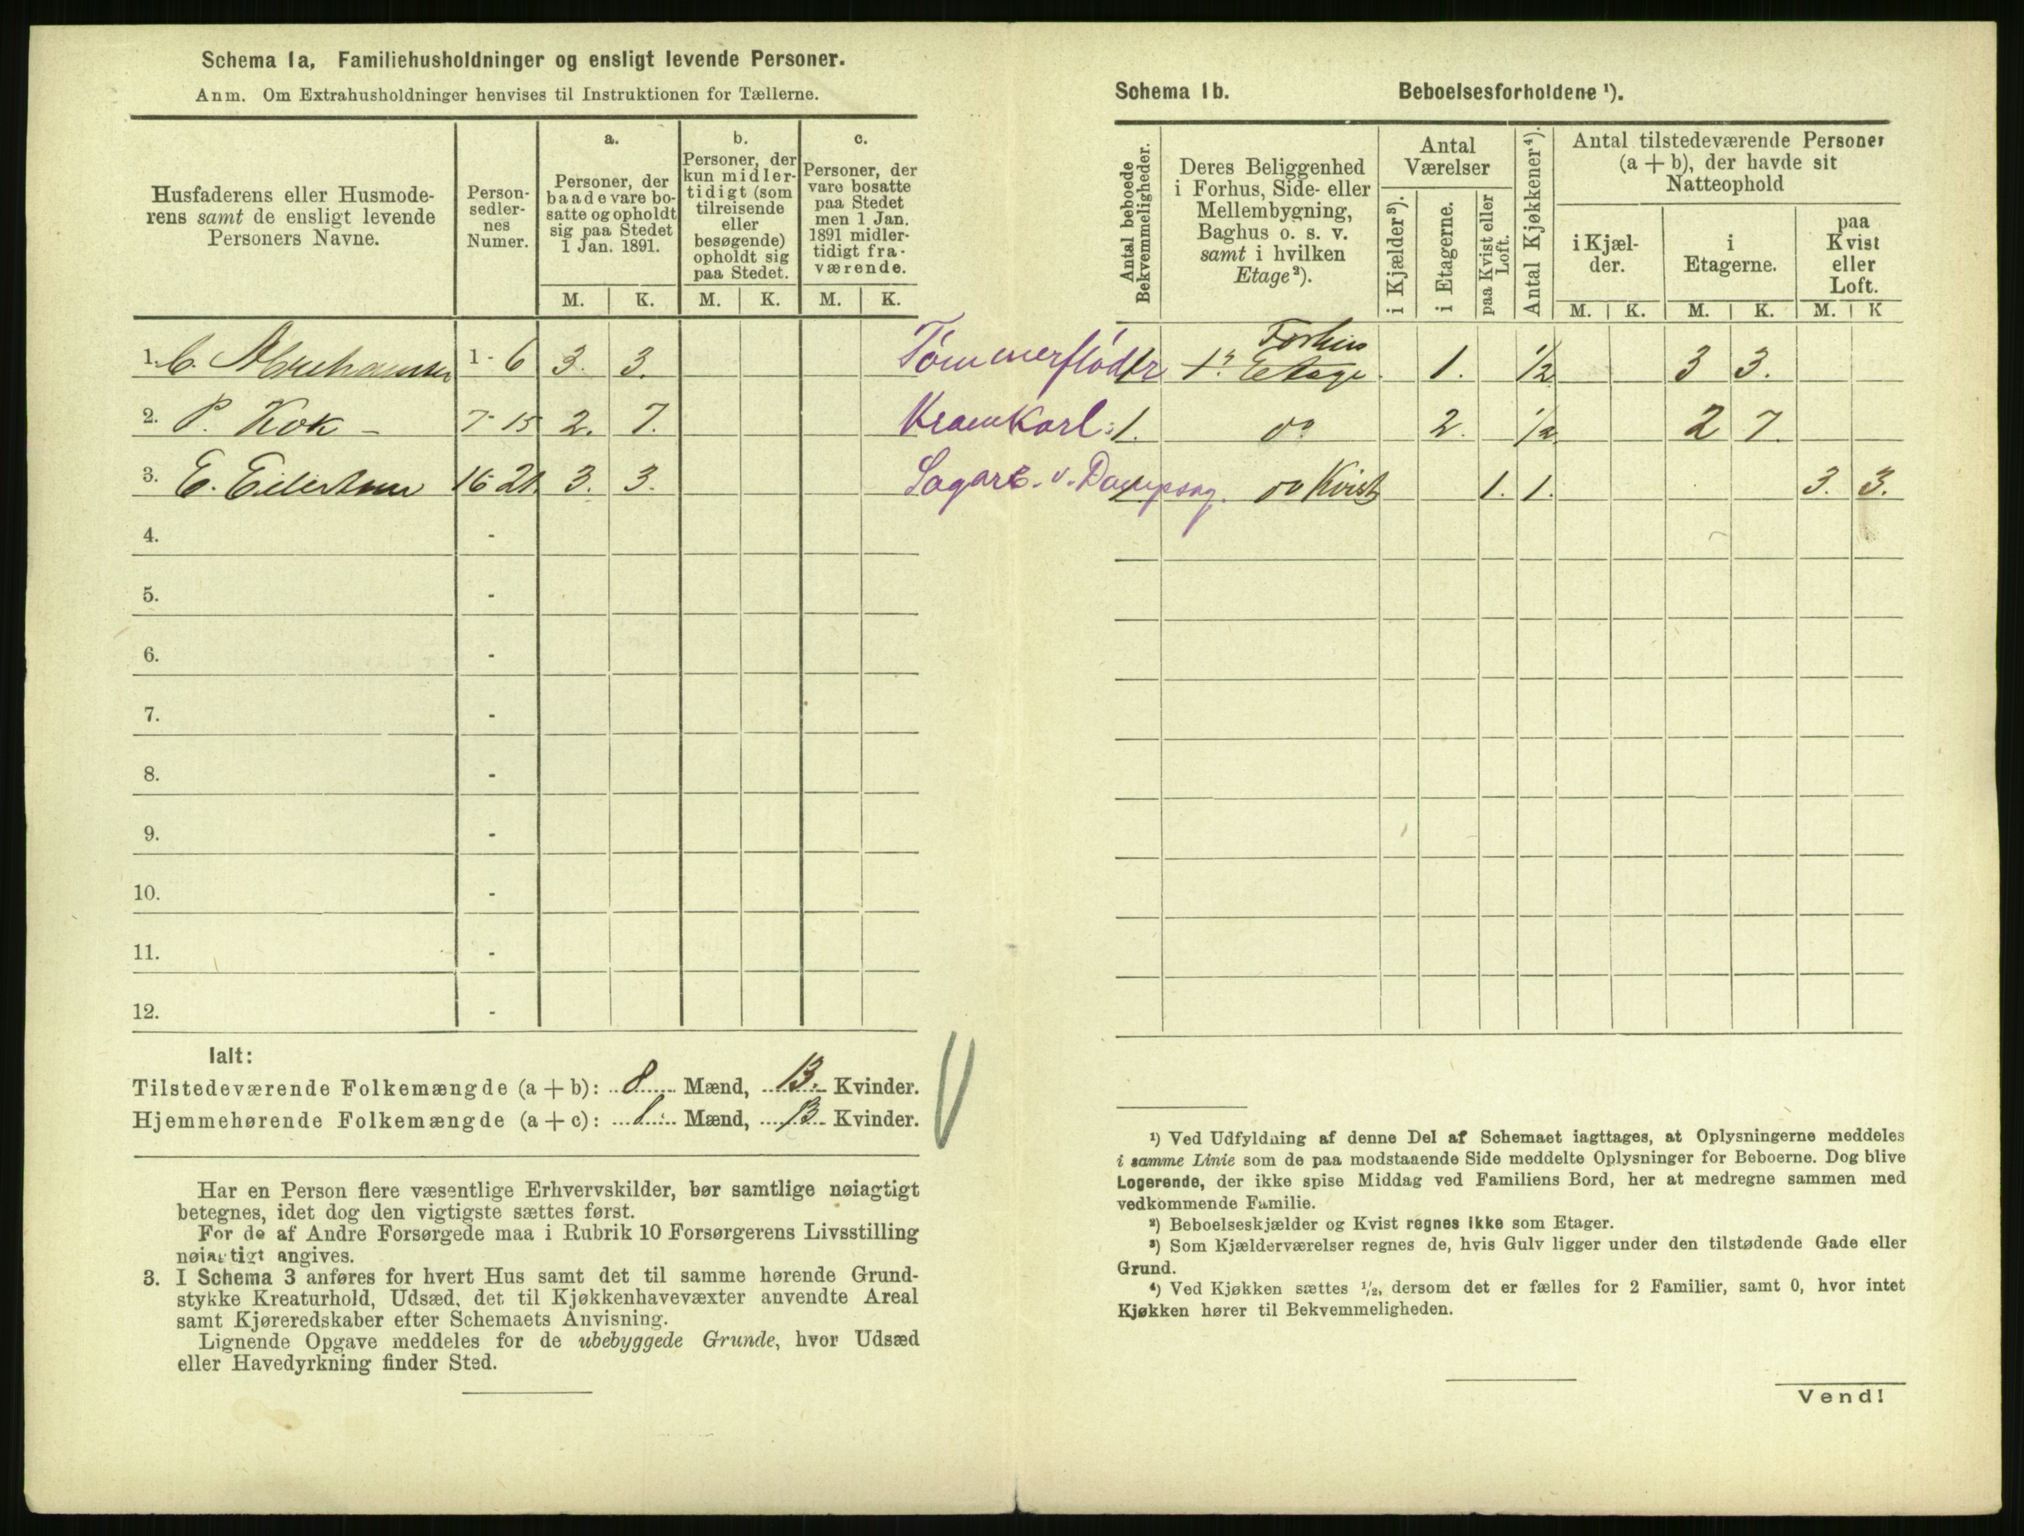 Schema 1a. Familiehusholdninger og ensligt levende Personer.
Anm. Om Extrahusholdninger henvises til Instruktionen for Tællerne.
Husfaderens eller Husmoderens samt de ensligt levende Personers Navne.
Personsedlernes Numer.
a.
Personer, der baade vare bosatte og opholdt sig paa Stedet 1 Jan. 1891.
b.
Personer, der kun midlertidigt (som tilreisende eller besøgende) opholdt sig paa Stedet.
c.
Personer, der vare bosatte paa Stedet men 1 Jan. 1891 midlertidigt fraværende.
M. K. M. K. M. K.
1. C. 1 - 6 3. 3.
2. P. Kok - 7 - 15 2. 7.
3. E. Eilertsen 16 - 21. 3. 3.
4. -
5. -
6. -
7. -
8. -
9. -
10. -
11. -
12. -
Ialt:
Tilstedeværende Folkemængde (a + b): 8 Mænd, 13. Kvinder.
Hjemmehørende Folkemængde (a + c): Mænd, 13 Kvinder.
Har en Person flere væsentlige Erhvervskilder, bør samtlige nøiagtigt
betegnes, idet dog den vigtigste sættes først.
For de af Andre Forsørgede maa i Rubrik 10 Forsørgerens Livsstilling
nøiagtigt angives.
3. I Schema 3 anføres for hvert Hus samt det til samme hørende Grund-
stykke Kreaturhold, Udsæd, det til Kjøkkenhavevæxter anvendte Areal
samt Kjøreredskaber efter Schemaets Anvisning.
Lignende Opgave meddeles for de ubebyggede Grunde, hvor Udsæd
eller Havedyrkning finder Sted.
Schema 1b. Beboelsesforholdene ¹).
Antal beboede Bekvemmeligheder.
Deres Beliggenhed i Forhus, Side- eller Mellembygning, Baghus o. s. v. samt i hvilken Etage²).
Antal Værelser
i Kjælder³).
i Etagerne.
paa Kvist eller Loft.
Antal Kjøkkener⁴).
Antal tilstedeværende Personer (a + b), der havde sit Natteophold
i Kjælder.
i Etagerne.
paa Kvist eller Loft.
M. K. M. K. M. K
Tømmerfløder 1. Forhus Etage 1. 1/2 3 3.
1. do 2. 1/2 2 7.
Sagarb. v. Dampsag. do Kvist 1. 1. 3. 3.
¹) Ved Udfyldning af denne Del af Schemaet iagttages, at Oplysningerne meddeles
i samme Linie som de paa modstaaende Side meddelte Oplysninger for Beboerne. Dog blive
Logerende, der ikke spise Middag ved Familiens Bord, her at medregne sammen med
vedkommende Familie.
²) Beboelseskjælder og Kvist regnes ikke som Etager.
³) Som Kjælderværelser regnes de, hvis Gulv ligger under den tilstødende Gade eller
Grund.
⁴) Ved Kjøkken sættes ½, dersom det er fælles for 2 Familier, samt 0, hvor intet
Kjøkken hører til Bekvemmeligheden.
Vend!